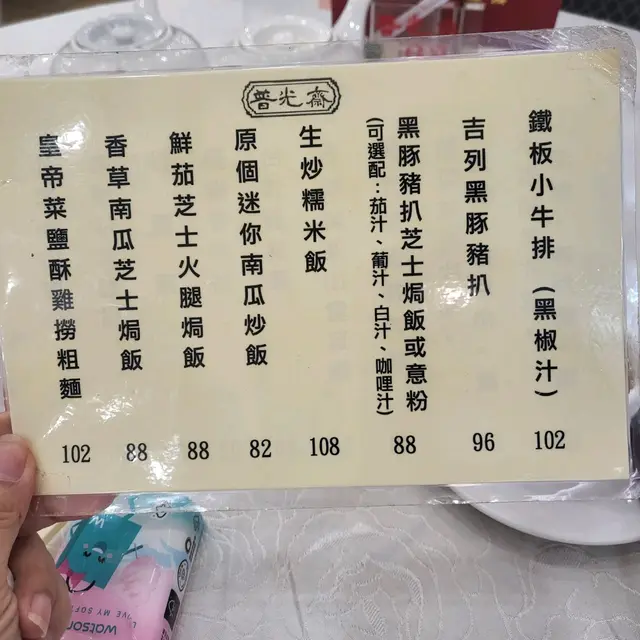 普光齋
鐵板小牛排（黑椒汁）
102
吉列黑豚豬扒
96
黑豚豬扒芝士焗飯或意粉
(可選配：茄汁、葡汁、白汁、咖哩汁)
88
生炒糯米飯
108
原個迷你南瓜炒飯
82
鮮茄芝士火腿焗飯
88
香草南瓜芝士焗飯
88
皇帝菜鹽酥雞撈粗麵
102
watsons